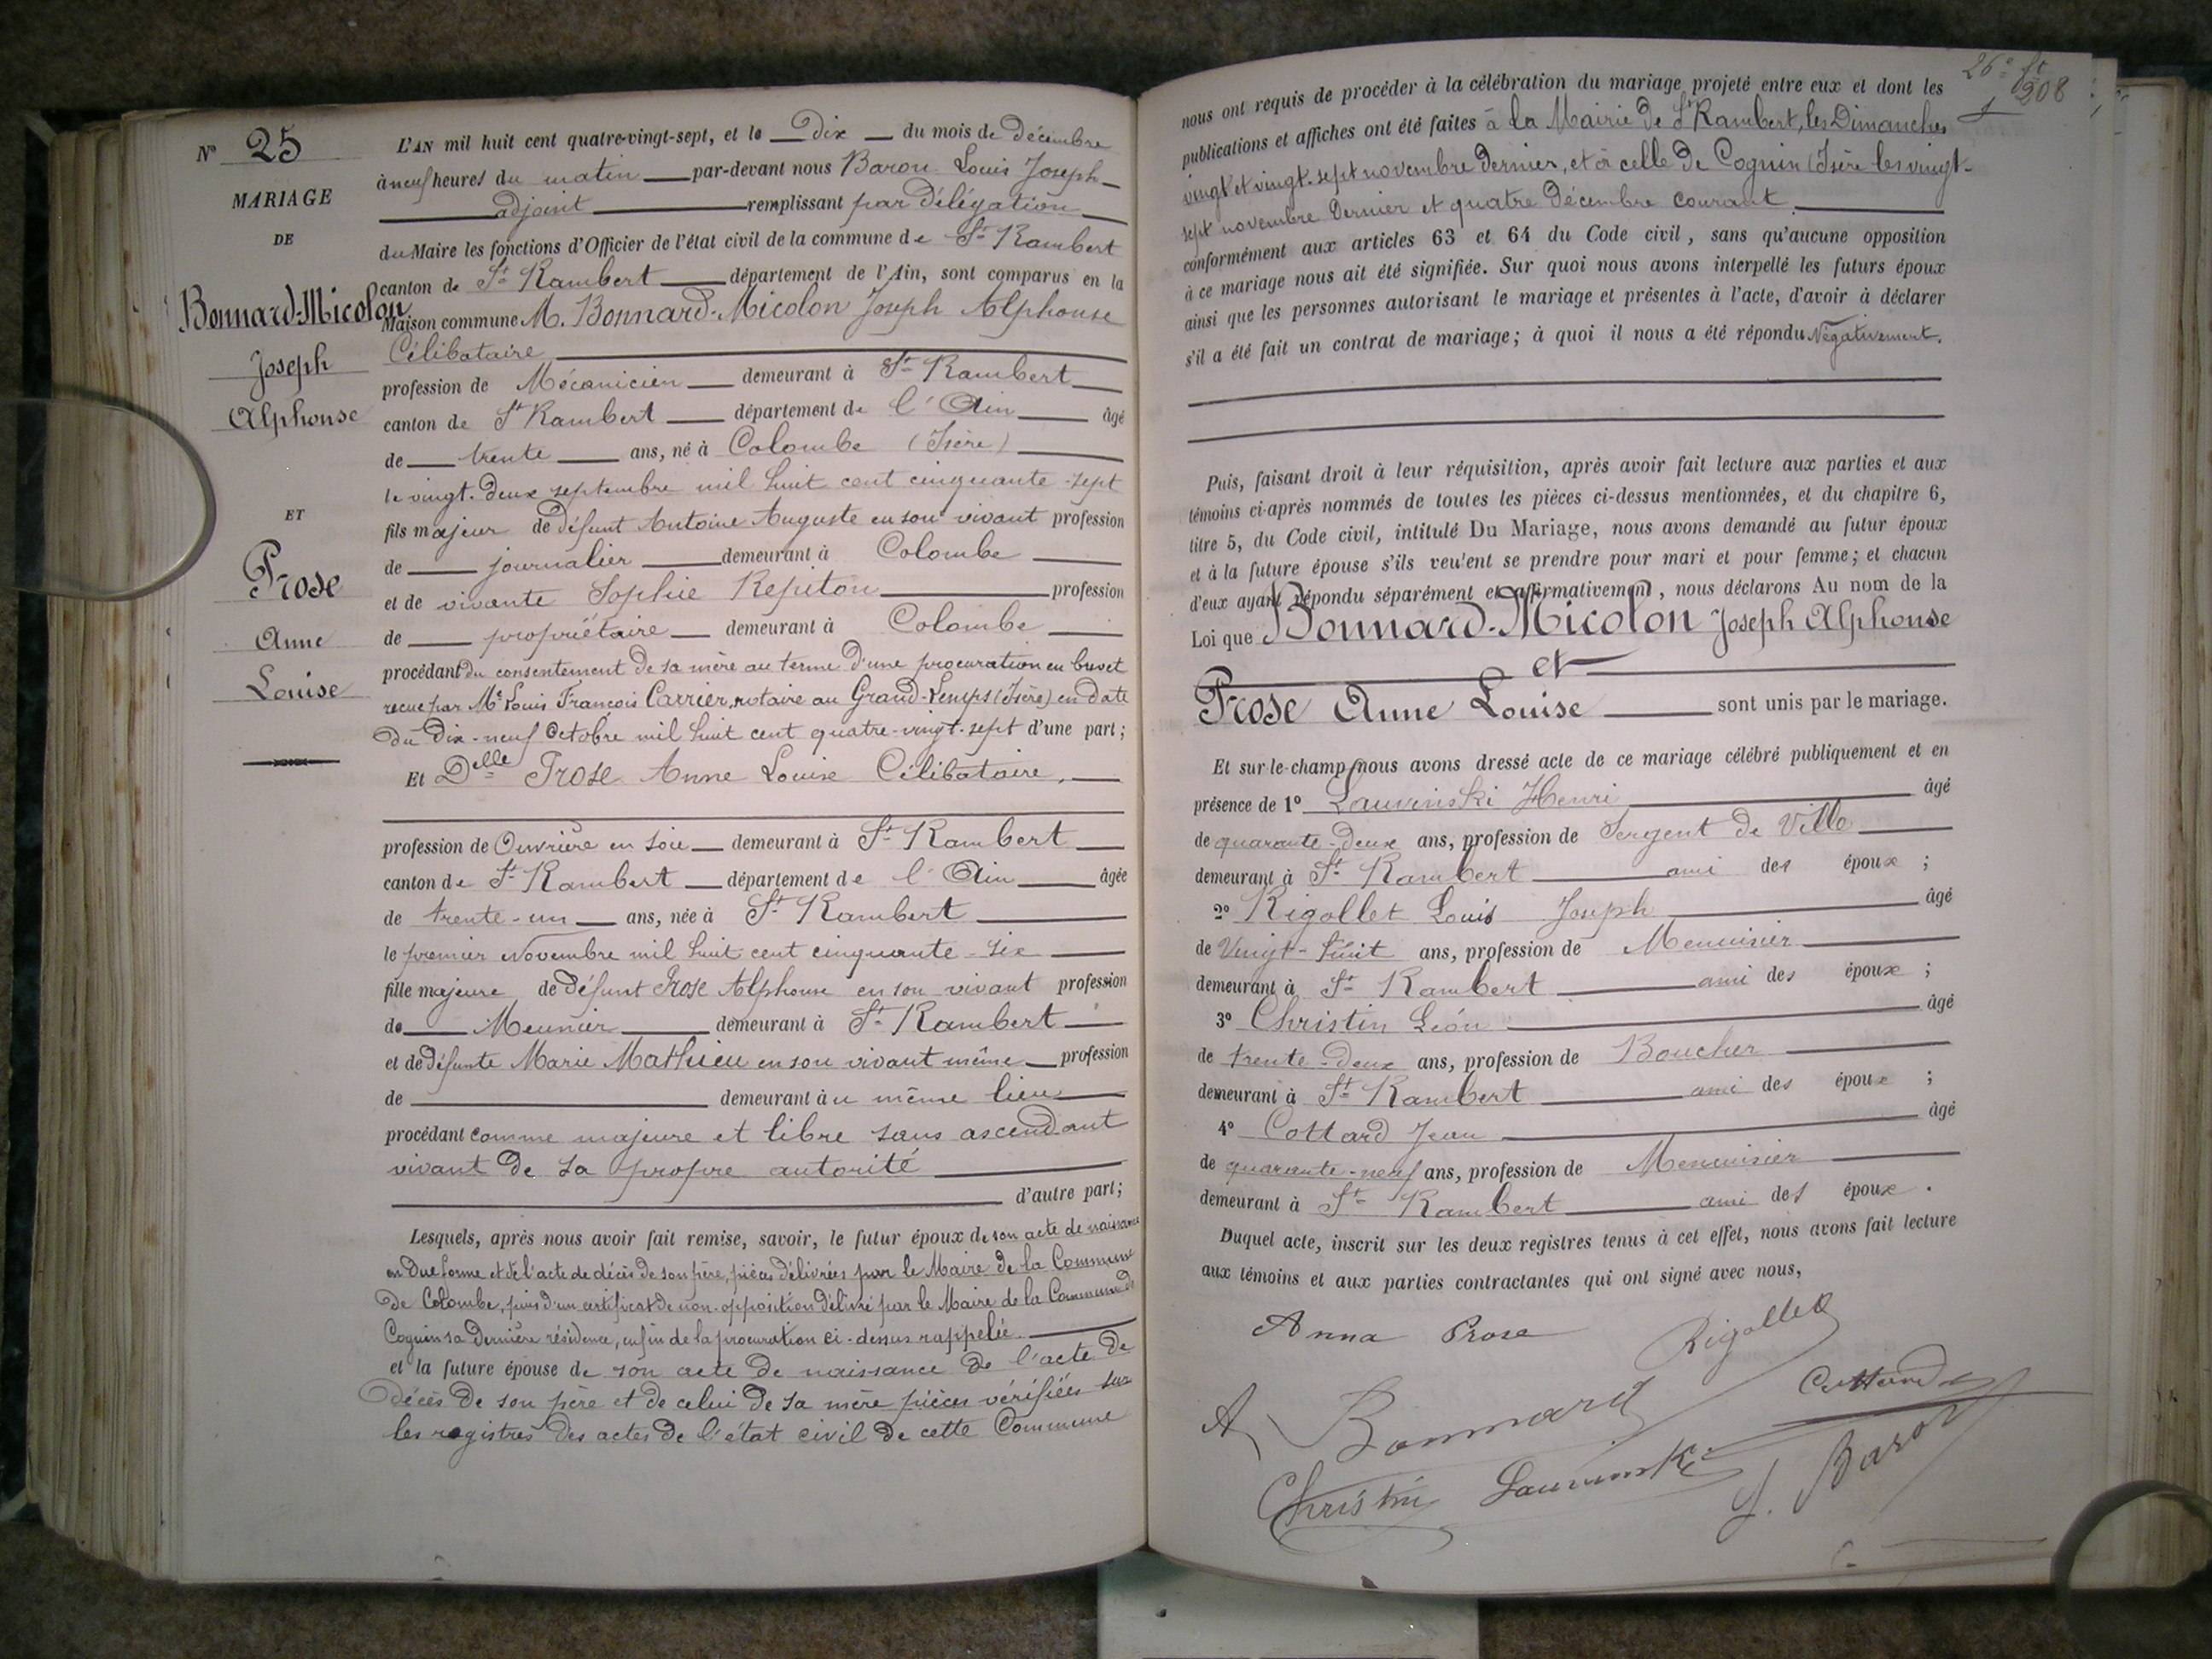 Nº 25
MARIAGE
DE
Bonnard-Micolon
Joseph
Alphonse
ET
Prose
Anne
Louise
L'AN mil huit cent quatre-vingt-sept, et le dix du mois de décembre
à neuf heures du matin par-devant nous Barou Louis Joseph
adjoint remplissant par Délégation
du Maire les fonctions d'Officier de l'état civil de la commune de St Rambert
canton de St Rambert département de l'Ain, sont comparus en la
Maison commune M. Bonnard-Micolon Joseph Alphonse
Célibataire
profession de Mécanicien demeurant à St Rambert
canton de St Rambert département de l'Ain âgé
de trente ans, né à Colombe (Isère)
le vingt-deux septembre mil huit cent cinquante-sept
fils majeur de défunt Antoine Auguste en son vivant profession
de journalier demeurant à Colombe
et de vivante Sophie Repiton profession
de propriétaire demeurant à Colombe
procédant du consentement de sa mère au terme d'une procuration en brevet
reçue par Me Louis François Carrier, notaire au Grand-Lemps (Isère) en date
du dix-neuf octobre mil huit cent quatre-vingt-sept d'une part;
Et Delle Prose Anne Louise Célibataire,
profession de Ouvrière en soie demeurant à St Rambert
canton de St Rambert département de l'Ain âgée
de trente-un ans, née à St Rambert
le premier Novembre mil huit cent cinquante-six
fille majeure de défunt Prose Alphonse en son vivant profession
de Meunier demeurant à St Rambert
et de défunte Marie Mathieu en son vivant même profession
de demeurant au même lieu
procédant comme majeure et libre sans ascendant
vivant de sa propre autorité
d'autre part;
Lesquels, après nous avoir fait remise, savoir, le futur époux de son acte de naissance
en due forme et de l'acte de décès de son père, pièces délivrées par le Maire de la Commune
de Colombe, puis d'un certificat de non-opposition délivré par le Maire de la Commune de
Cognin sa dernière résidence, enfin de la procuration ci-dessus rappelée.
et la future épouse de son acte de naissance de l'acte de
décès de son père et de celui de sa mère pièces vérifiées sur
les registres des actes de l'état civil de cette Commune
26e ft
208
nous ont requis de procéder à la célébration du mariage projeté entre eux et dont les
publications et affiches ont été faites à la Mairie de St Rambert, les Dimanches
vingt et vingt-sept novembre dernier, et à celle de Cognin (Isère les vingt-
sept novembre dernier et quatre Décembre courant.
conformément aux articles 63 et 64 du Code civil, sans qu'aucune opposition
à ce mariage nous ait été signifiée. Sur quoi nous avons interpellé les futurs époux
ainsi que les personnes autorisant le mariage et présentes à l'acte, d'avoir à déclarer
s'il a été fait un contrat de mariage; à quoi il nous a été répondu Négativement.
Puis, faisant droit à leur réquisition, après avoir fait lecture aux parties et aux
témoins ci-après nommés de toutes les pièces ci-dessus mentionnées, et du chapitre 6,
titre 5, du Code civil, intitulé Du Mariage, nous avons demandé au futur époux
et à la future épouse s'ils veulent se prendre pour mari et pour femme; et chacun
d'eux ayant répondu séparément et affirmativement, nous déclarons Au nom de la
Loi que Bonnard-Micolon Joseph Alphonse
et
Prose Anne Louise sont unis par le mariage.
Et sur-le-champ nous avons dressé acte de ce mariage célébré publiquement et en
présence de 1º Lauvinski Henri âgé
de quarante-deux ans, profession de Sergent de Ville
demeurant à St Rambert ami des époux ;
2º Rigollet Louis Joseph âgé
de Vingt-huit ans, profession de Menuisier
demeurant à St Rambert ami des époux ;
3º Christin Léon âgé
de trente-deux ans, profession de Boucher
demeurant à St Rambert ami des époux ;
4º Cottard Jean âgé
de quarante-neuf ans, profession de Menuisier
demeurant à St Rambert ami des époux .
Duquel acte, inscrit sur les deux registres tenus à cet effet, nous avons fait lecture
aux témoins et aux parties contractantes qui ont signé avec nous,
Anna Prose
Rigollet
A Bonnard
Cottard
Christin
Lauvinski
J. Barou